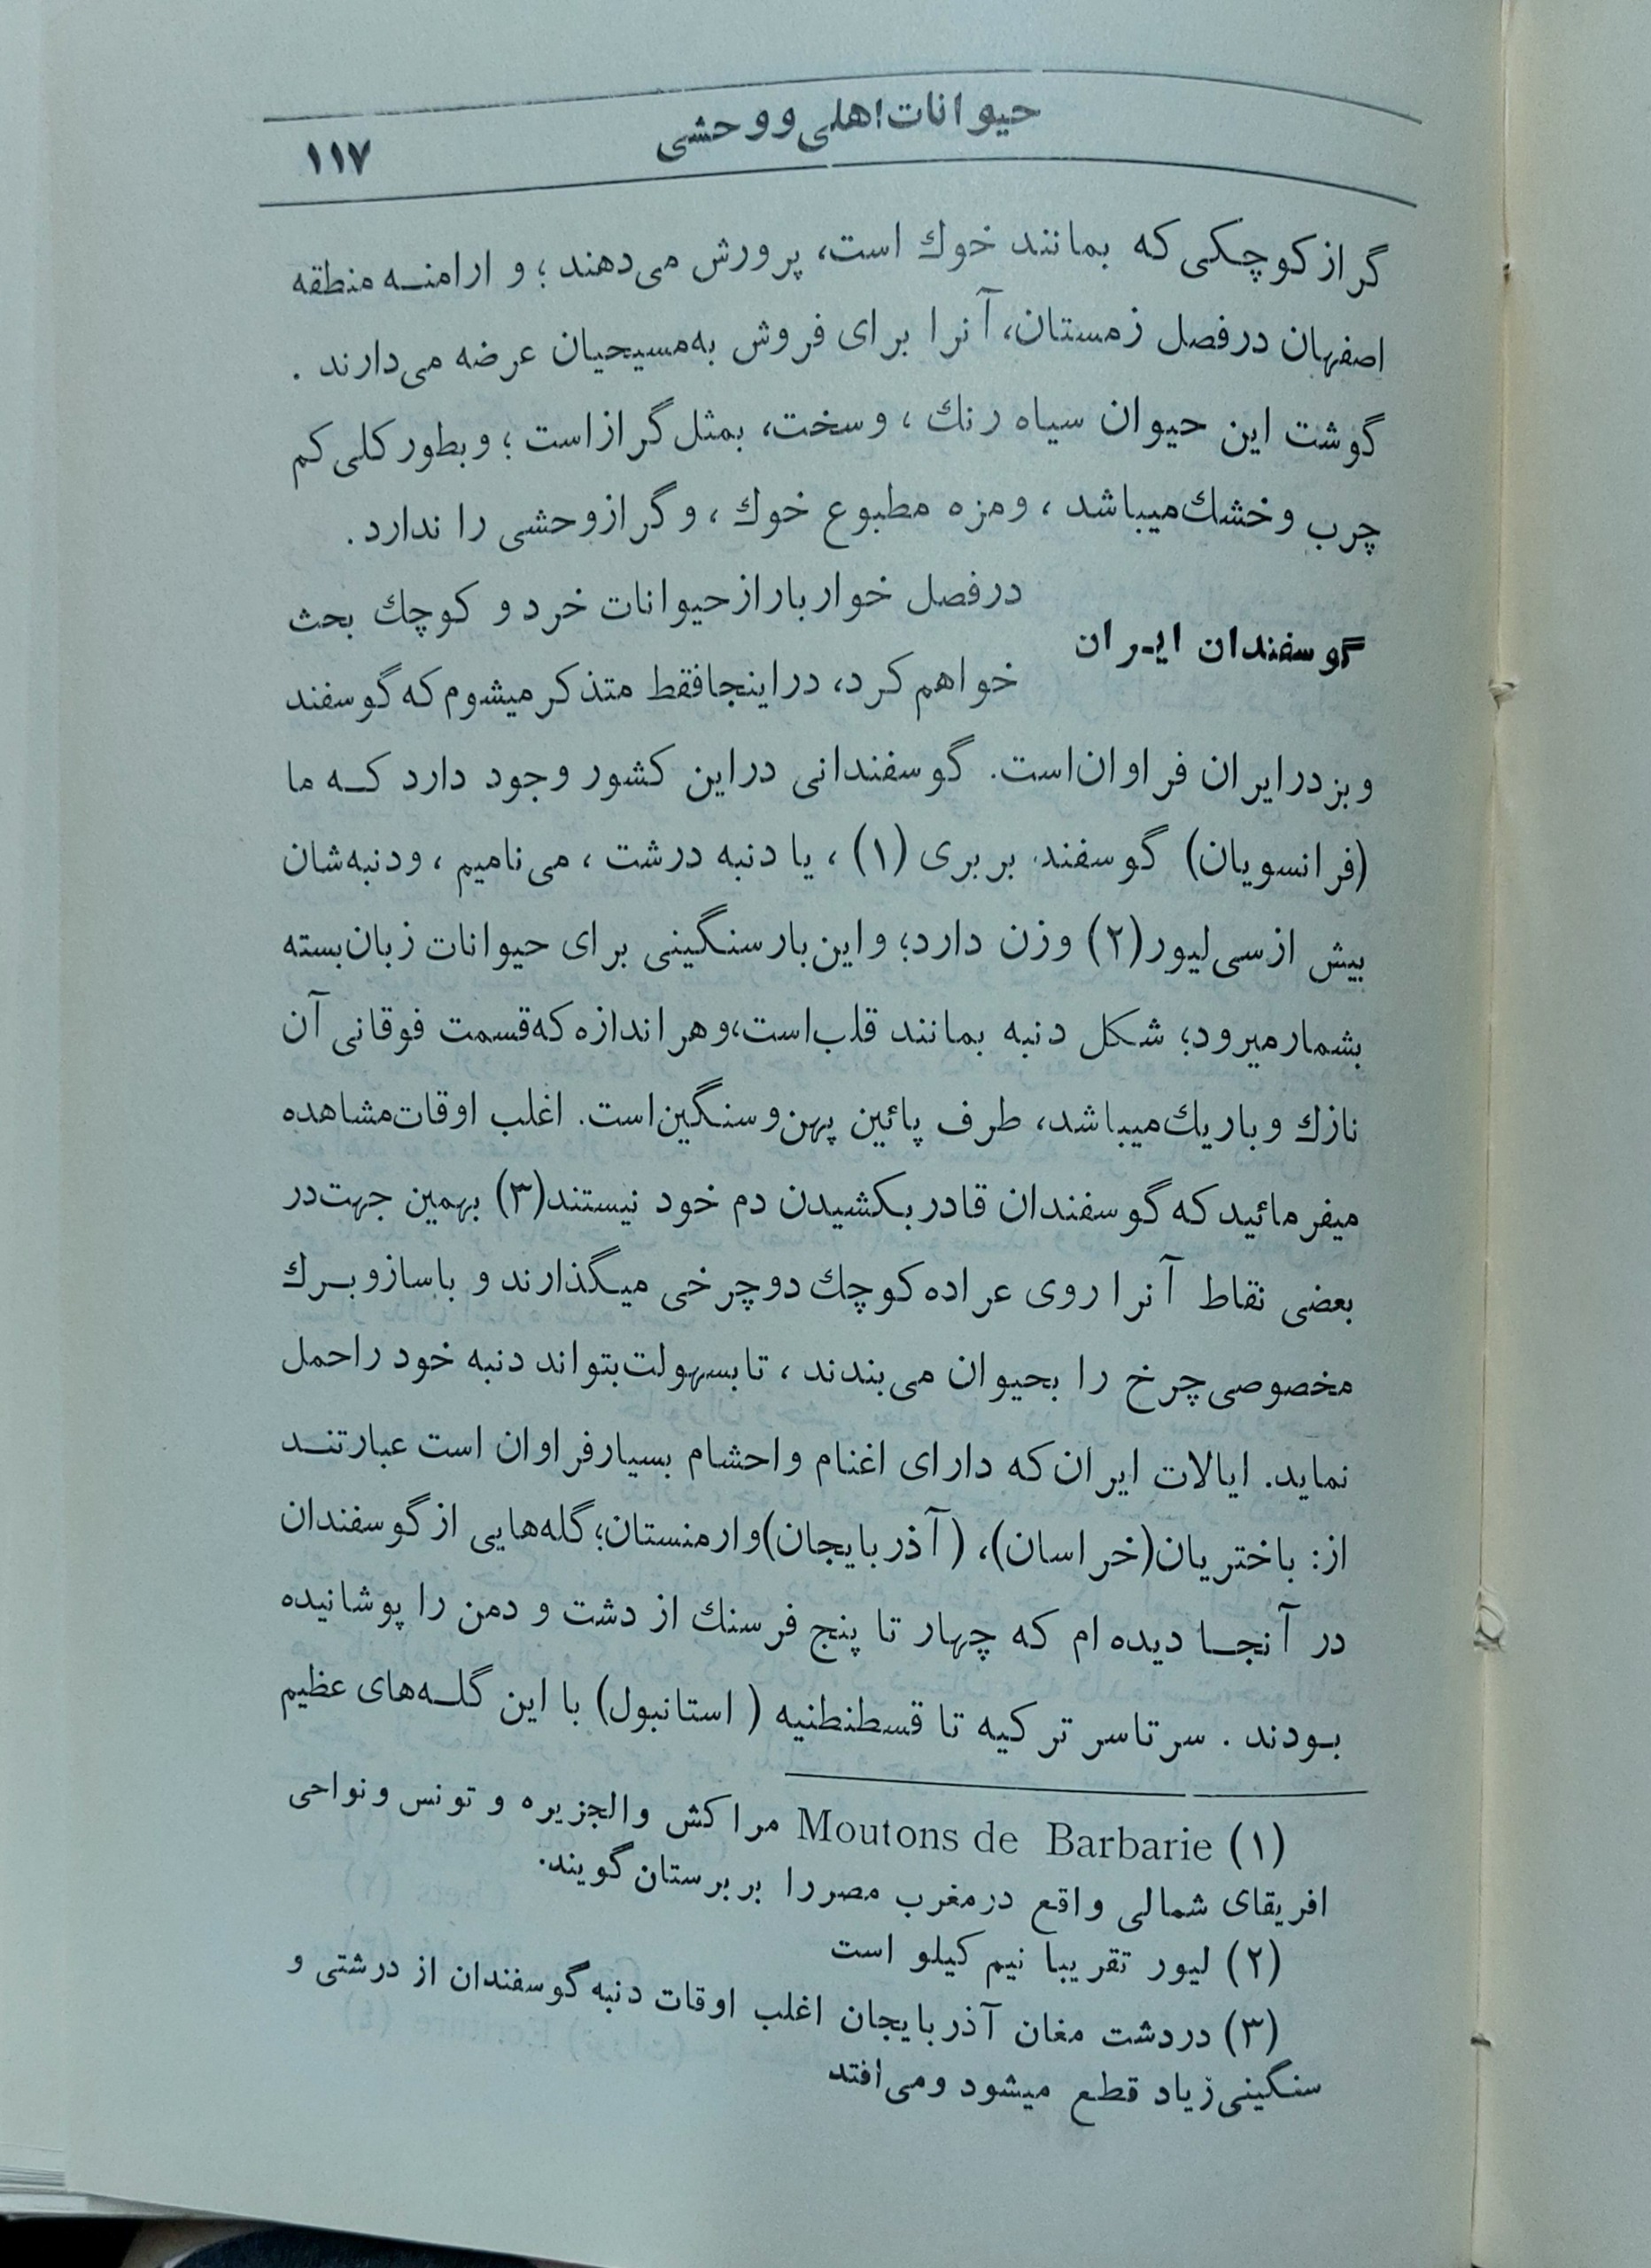 حیوانات اهلی و وحشی
۱۱۷
گراز کوچکی که بمانند خوك است، پرورش می‌دهند ؛ و ارامنه منطقه
اصفهان درفصل زمستان، آنرا برای فروش به‌مسیحیان عرضه می‌دارند .
گوشت این حیوان سیاه رنك ، و سخت، بمثل گراز است ؛ و بطور کلی کم
چرب و خشك میباشد ، و مزه مطبوع خوك ، و گراز وحشی را ندارد .
گوسفندان ایران
درفصل خواربار از حیوانات خرد و کوچك بحث
خواهم کرد، دراینجا فقط متذکر میشوم که گوسفند
و بز درایران فراوان است. گوسفندانی دراین کشور وجود دارد که ما
(فرانسویان) گوسفند بربری (۱) ، یا دنبه درشت ، می‌نامیم ، و دنبه‌شان
بیش از سی لیور (۲) وزن دارد؛ و این بار سنگینی برای حیوانات زبان بسته
بشمار میرود؛ شکل دنبه بمانند قلب است، و هر اندازه که قسمت فوقانی آن
نازك و باریك میباشد، طرف پائین پهن و سنگین است. اغلب اوقات مشاهده
میفرمائید که گوسفندان قادر بکشیدن دم خود نیستند (۳) بهمین جهت در
بعضی نقاط آنرا روی عراده کوچك دوچرخی میگذارند و با ساز و برك
مخصوصی چرخ را بحیوان می‌بندند ، تا بسهولت بتواند دنبه خود را حمل
نماید. ایالات ایران که دارای اغنام و احشام بسیار فراوان است عبارتند
از: باختریان (خراسان)، (آذربایجان) و ارمنستان؛ گله‌هایی از گوسفندان
در آنجا دیده ام که چهار تا پنج فرسنك از دشت و دمن را پوشانیده
بودند . سرتاسر ترکیه تا قسطنطنیه ( استانبول) با این گله‌های عظیم
(۱) Moutons de Barbarie مراکش و الجزیره و تونس و نواحی
افریقای شمالی واقع درمغرب مصر را بربرستان گویند.
(۲) لیور تقریبا نیم کیلو است
(۳) دردشت مغان آذربایجان اغلب اوقات دنبه گوسفندان از درشتی و
سنگینی زیاد قطع میشود و می‌افتد